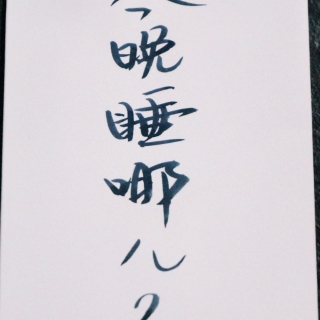 今晚睡哪儿?